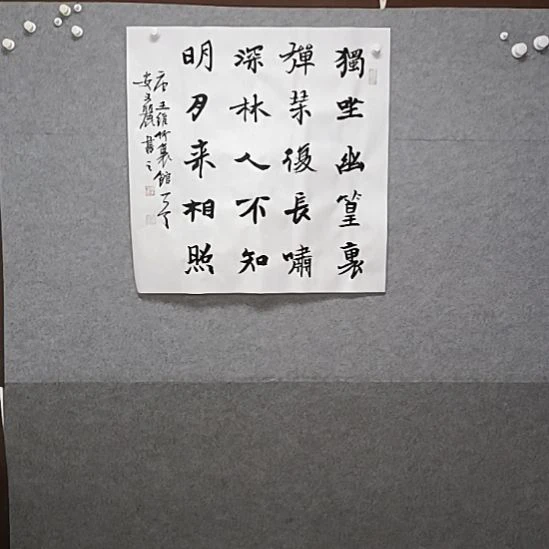 獨坐幽篁裏
彈琹復長嘯
深林人不知
明月来相照
唐王維竹裏館一首
書之